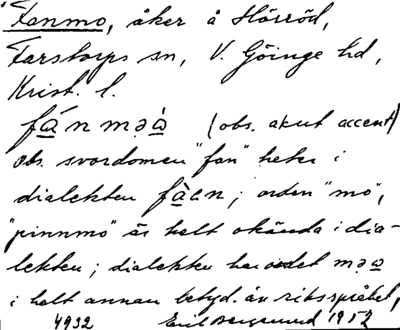 "Fanmo, åker å Hörröd,
Farstorps sn, V. Göinge hd,
Krist. l.
fánməà (obs. akut accent)
obs. svordomen "fan" heter i
dialekten fàen; orden "mo",
"pinnmo" är helt okända i dia-
lekten; dialekten har ordet məa
i helt annan betyd. än riksspråket,
4932 Erik Bergstrand 1957